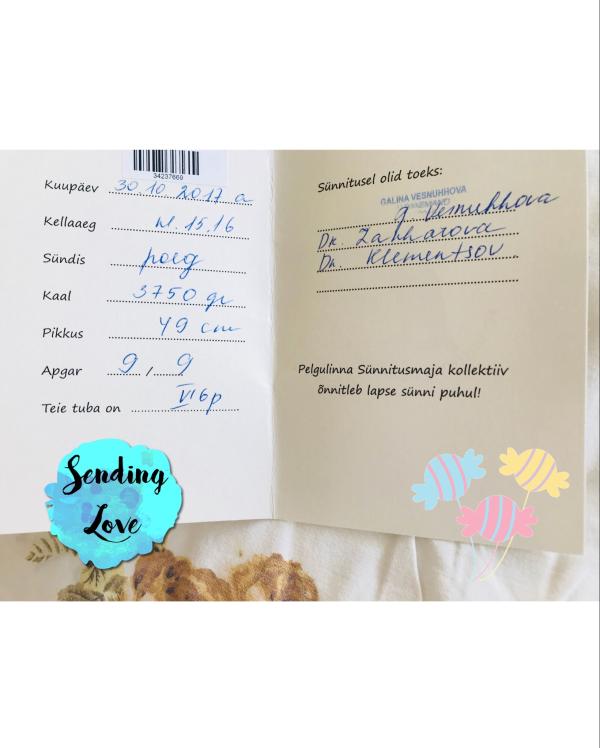 34237669
Kuupäev 30 10 2017 a
Kellaaeg kl. 15.16
Sündis poeg
Kaal 3750 gr
Pikkus 49 cm
Apgar 9 / 9
Teie tuba on VI 6p
Sünnitusel olid toeks:
GALINA VESNUHHOVA
G Vesnuhhova
Dr. Zahharova
Dr. Klementsov
Pelgulinna Sünnitusmaja kollektiiv
õnnitleb lapse sünni puhul!
Sending
Love